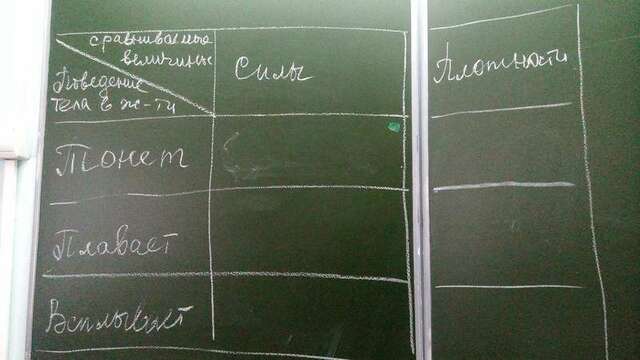 сравниваемые
величины
Поведение
тела в ж-ти
Силы
Плотности
Тонет
Плавает
Всплывает